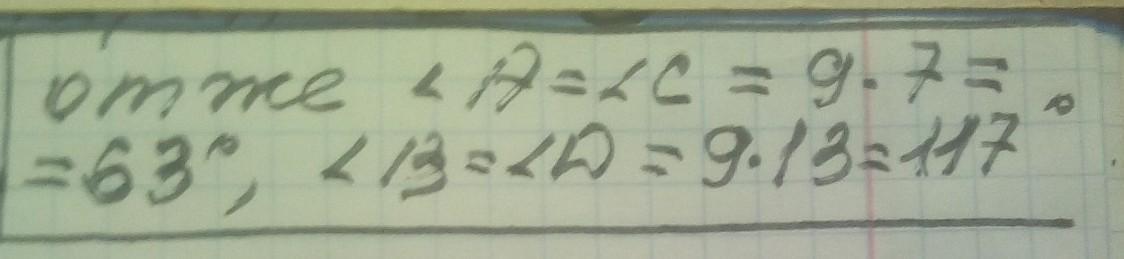 отже ∠A = ∠C = 9·7 =
= 63°, ∠B = ∠D = 9·13 = 117°